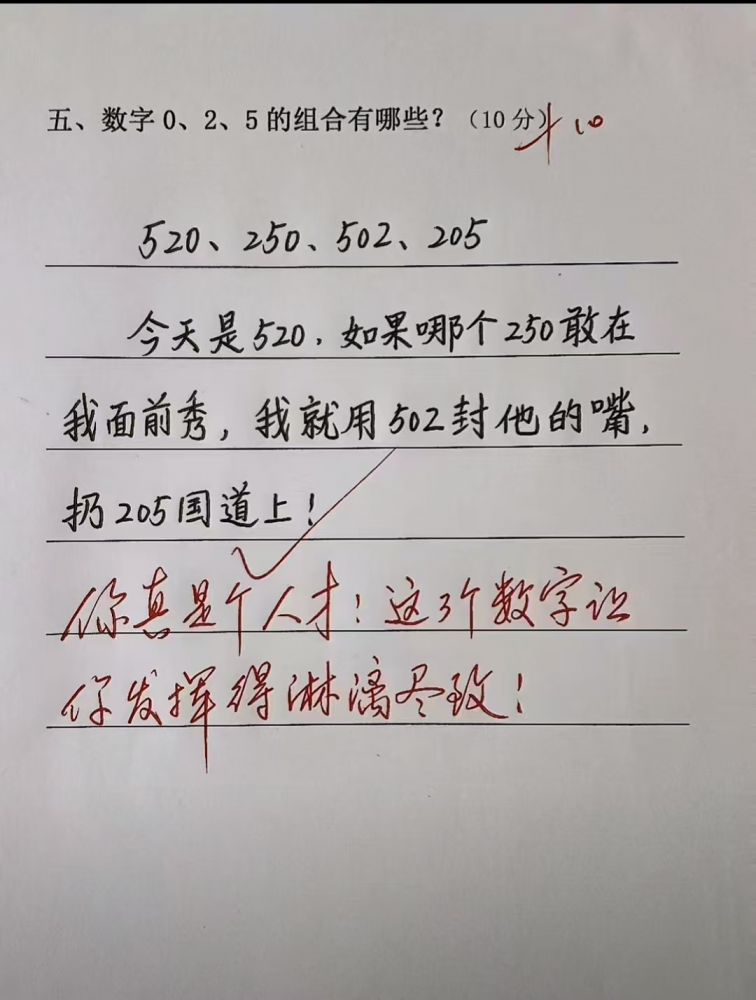 五、数字 0、2、5 的组合有哪些？（10 分）+10
520、250、502、205
今天是520，如果哪个250敢在
我面前秀，我就用502封他的嘴，
扔205国道上！
你真是个人才！这3个数字让
你发挥得淋漓尽致！